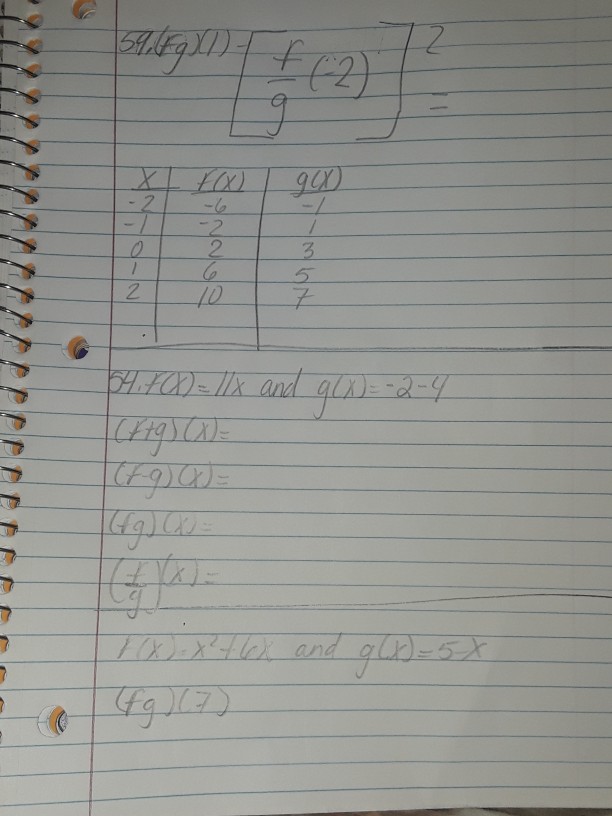 59. (fg)(1) - [f/g (-2)]² =
x f(x) g(x)
-2 -6 -1
-1 -2 1
0 2 3
1 6 5
2 10 7
54. f(x) = 11x and g(x) = -2-4
(f+g)(x) =
(f-g)(x) =
(fg)(x) =
(f/g)(x) =
f(x) = x² + 6x and g(x) = 5-x
(fg)(7)